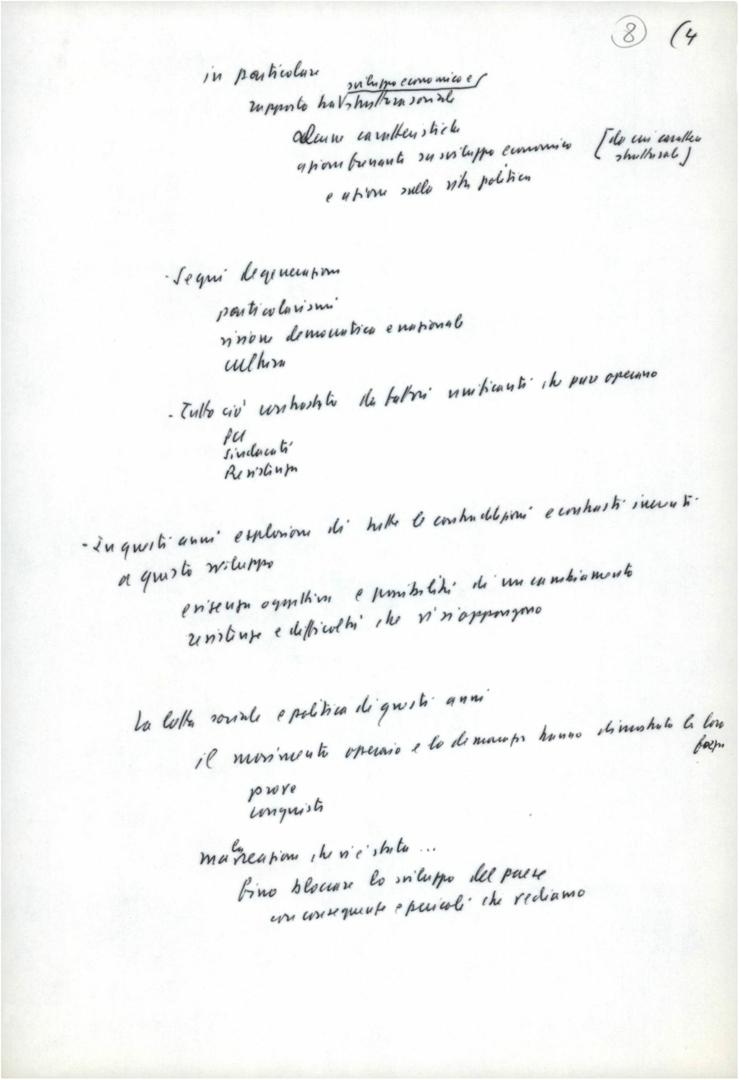 8 (4
in particolare
sviluppo economico e
rapporto tra struttura sociale
alcune caratteristiche
azione frenante su sviluppo economico [da cui carattere
strutturale]
e azione sulla vita politica
- Segni degenerazione
particolarismi
visione democratica e nazionale
cultura
- Tutto ciò contrastato da fattori unificanti che pure operano
PCI
sindacati
Resistenza
- In questi anni esplosione di tutte le contraddizioni e contrasti inerenti
a questo sviluppo
esistenza oggettiva e possibilità di un cambiamento
resistenze e difficoltà che vi si oppongono
La lotta sociale e politica di questi anni
il movimento operaio e la democrazia hanno dimostrato la loro
forza
prove
conquiste
ma la reazione che vi è stata ...
fino bloccare lo sviluppo del paese
con conseguenze e pericoli che vediamo